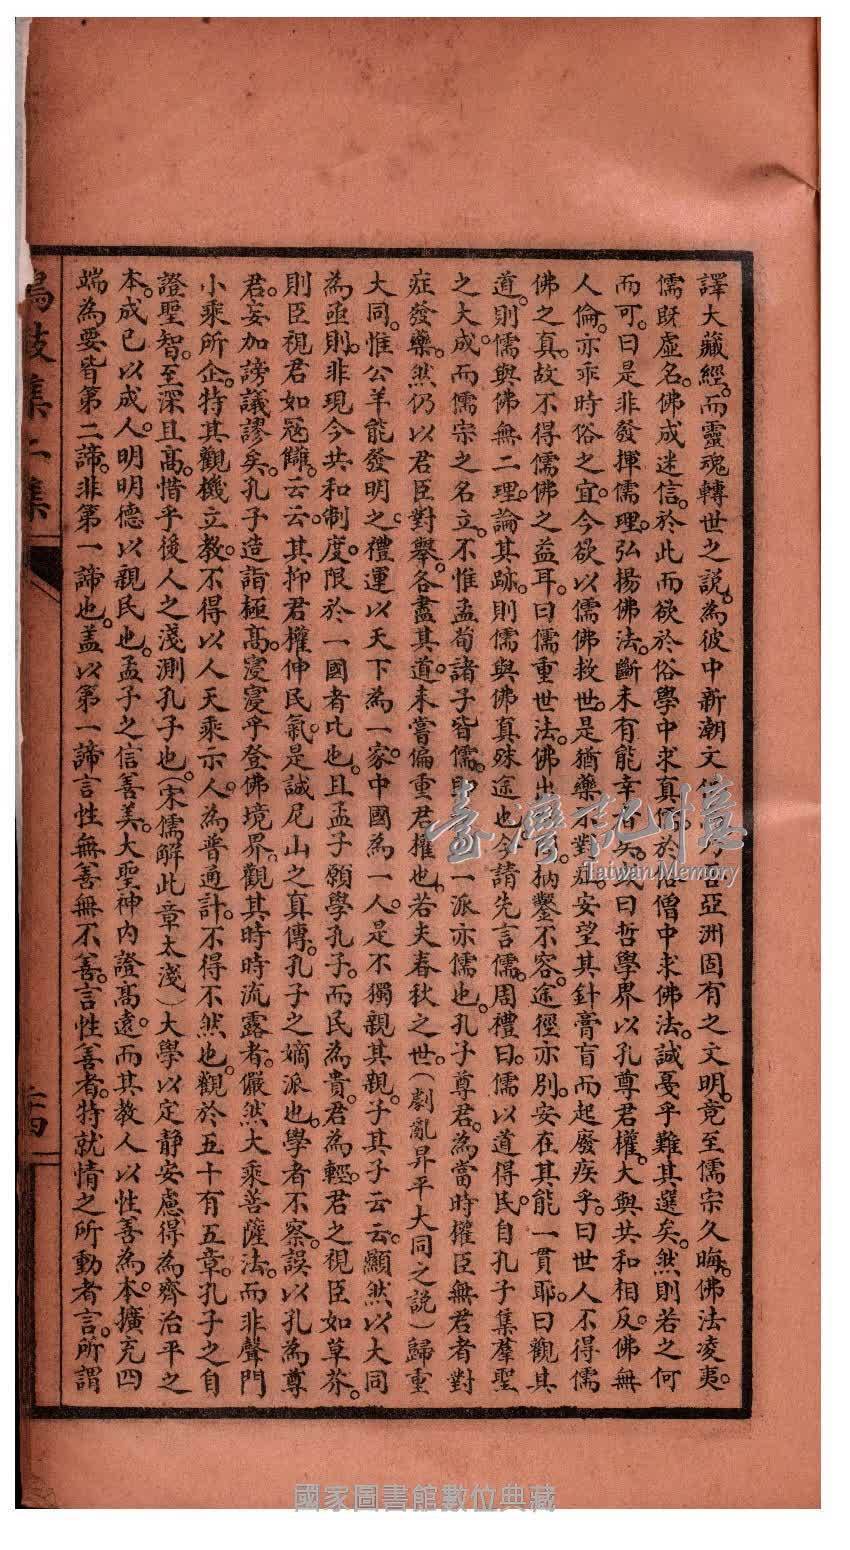 譯大藏經。而靈魂轉世之說。為彼中新潮文亞洲固有之文明。竟至儒宗久晦。佛法凌夷。
儒既虛名。佛成迷信。於此而欲於俗學中求真儒。於俗僧中求佛法。誠憂乎難其選矣。然則若之何
而可。曰是非發揮儒理。弘揚佛法。斷未有能幸者矣。或曰哲學界以孔尊君權。大與共和相反。佛無
人倫。亦乖時俗之宜。今欲以儒佛救世。是猶藥不對症。安望其針膏肓而起廢疾乎。曰世人不得儒
佛之真。故不得儒佛之益耳。曰儒重世法。佛出枘鑿不容。途徑亦別。安在其能一貫耶。曰觀其
道。則儒與佛無二理。論其跡。則儒與佛真殊途也。今請先言儒。周禮曰。儒以道得民。自孔子集羣聖
之大成。而儒宗之名立。不惟孟荀諸子皆儒。即一派亦儒也。孔子尊君。為當時權臣無君者對
症發藥。然仍以君臣對舉。各盡其道。未嘗偏重君權也。若夫春秋之世。(劇亂昇平大同之說)歸重
大同。惟公羊能發明之。禮運以天下為一家。中國為一人。是不獨親其親。子其子云云。顯然以大同
為亟則。非現今共和制度。限於一國者比也。且孟子願學孔子。而民為貴。君為輕。君之視臣如草芥。
則臣視君如寇讎。云云。其抑君權伸民氣。是誠尼山之真傳。孔子之嫡派也。學者不察。誤以孔為尊
君。妄加謗議。謬矣。孔子造詣極高。寖寖乎登佛境界。觀其時時流露者。儼然大乘菩薩法。而非聲門
小乘所企。特其觀機立教。不得以人天乘示人。為普通計。不得不然也。觀於五十有五章。孔子之自
證聖智。至深且高。惜乎後人之淺測孔子也。(宋儒解此章太淺)大學以定靜安慮得為齊治平之
本。成己以成人。明明德以親民也。孟子之信善美。大聖神內證高遠。而其教人以性善為本。擴充四
端為要。皆第二諦。非第一諦也。蓋以第一諦言性無善無不善。言性善者。特就情之所動者言。所謂
鼓集二集
十四
臺灣記憶
Taiwan Memory
國家圖書館數位典藏